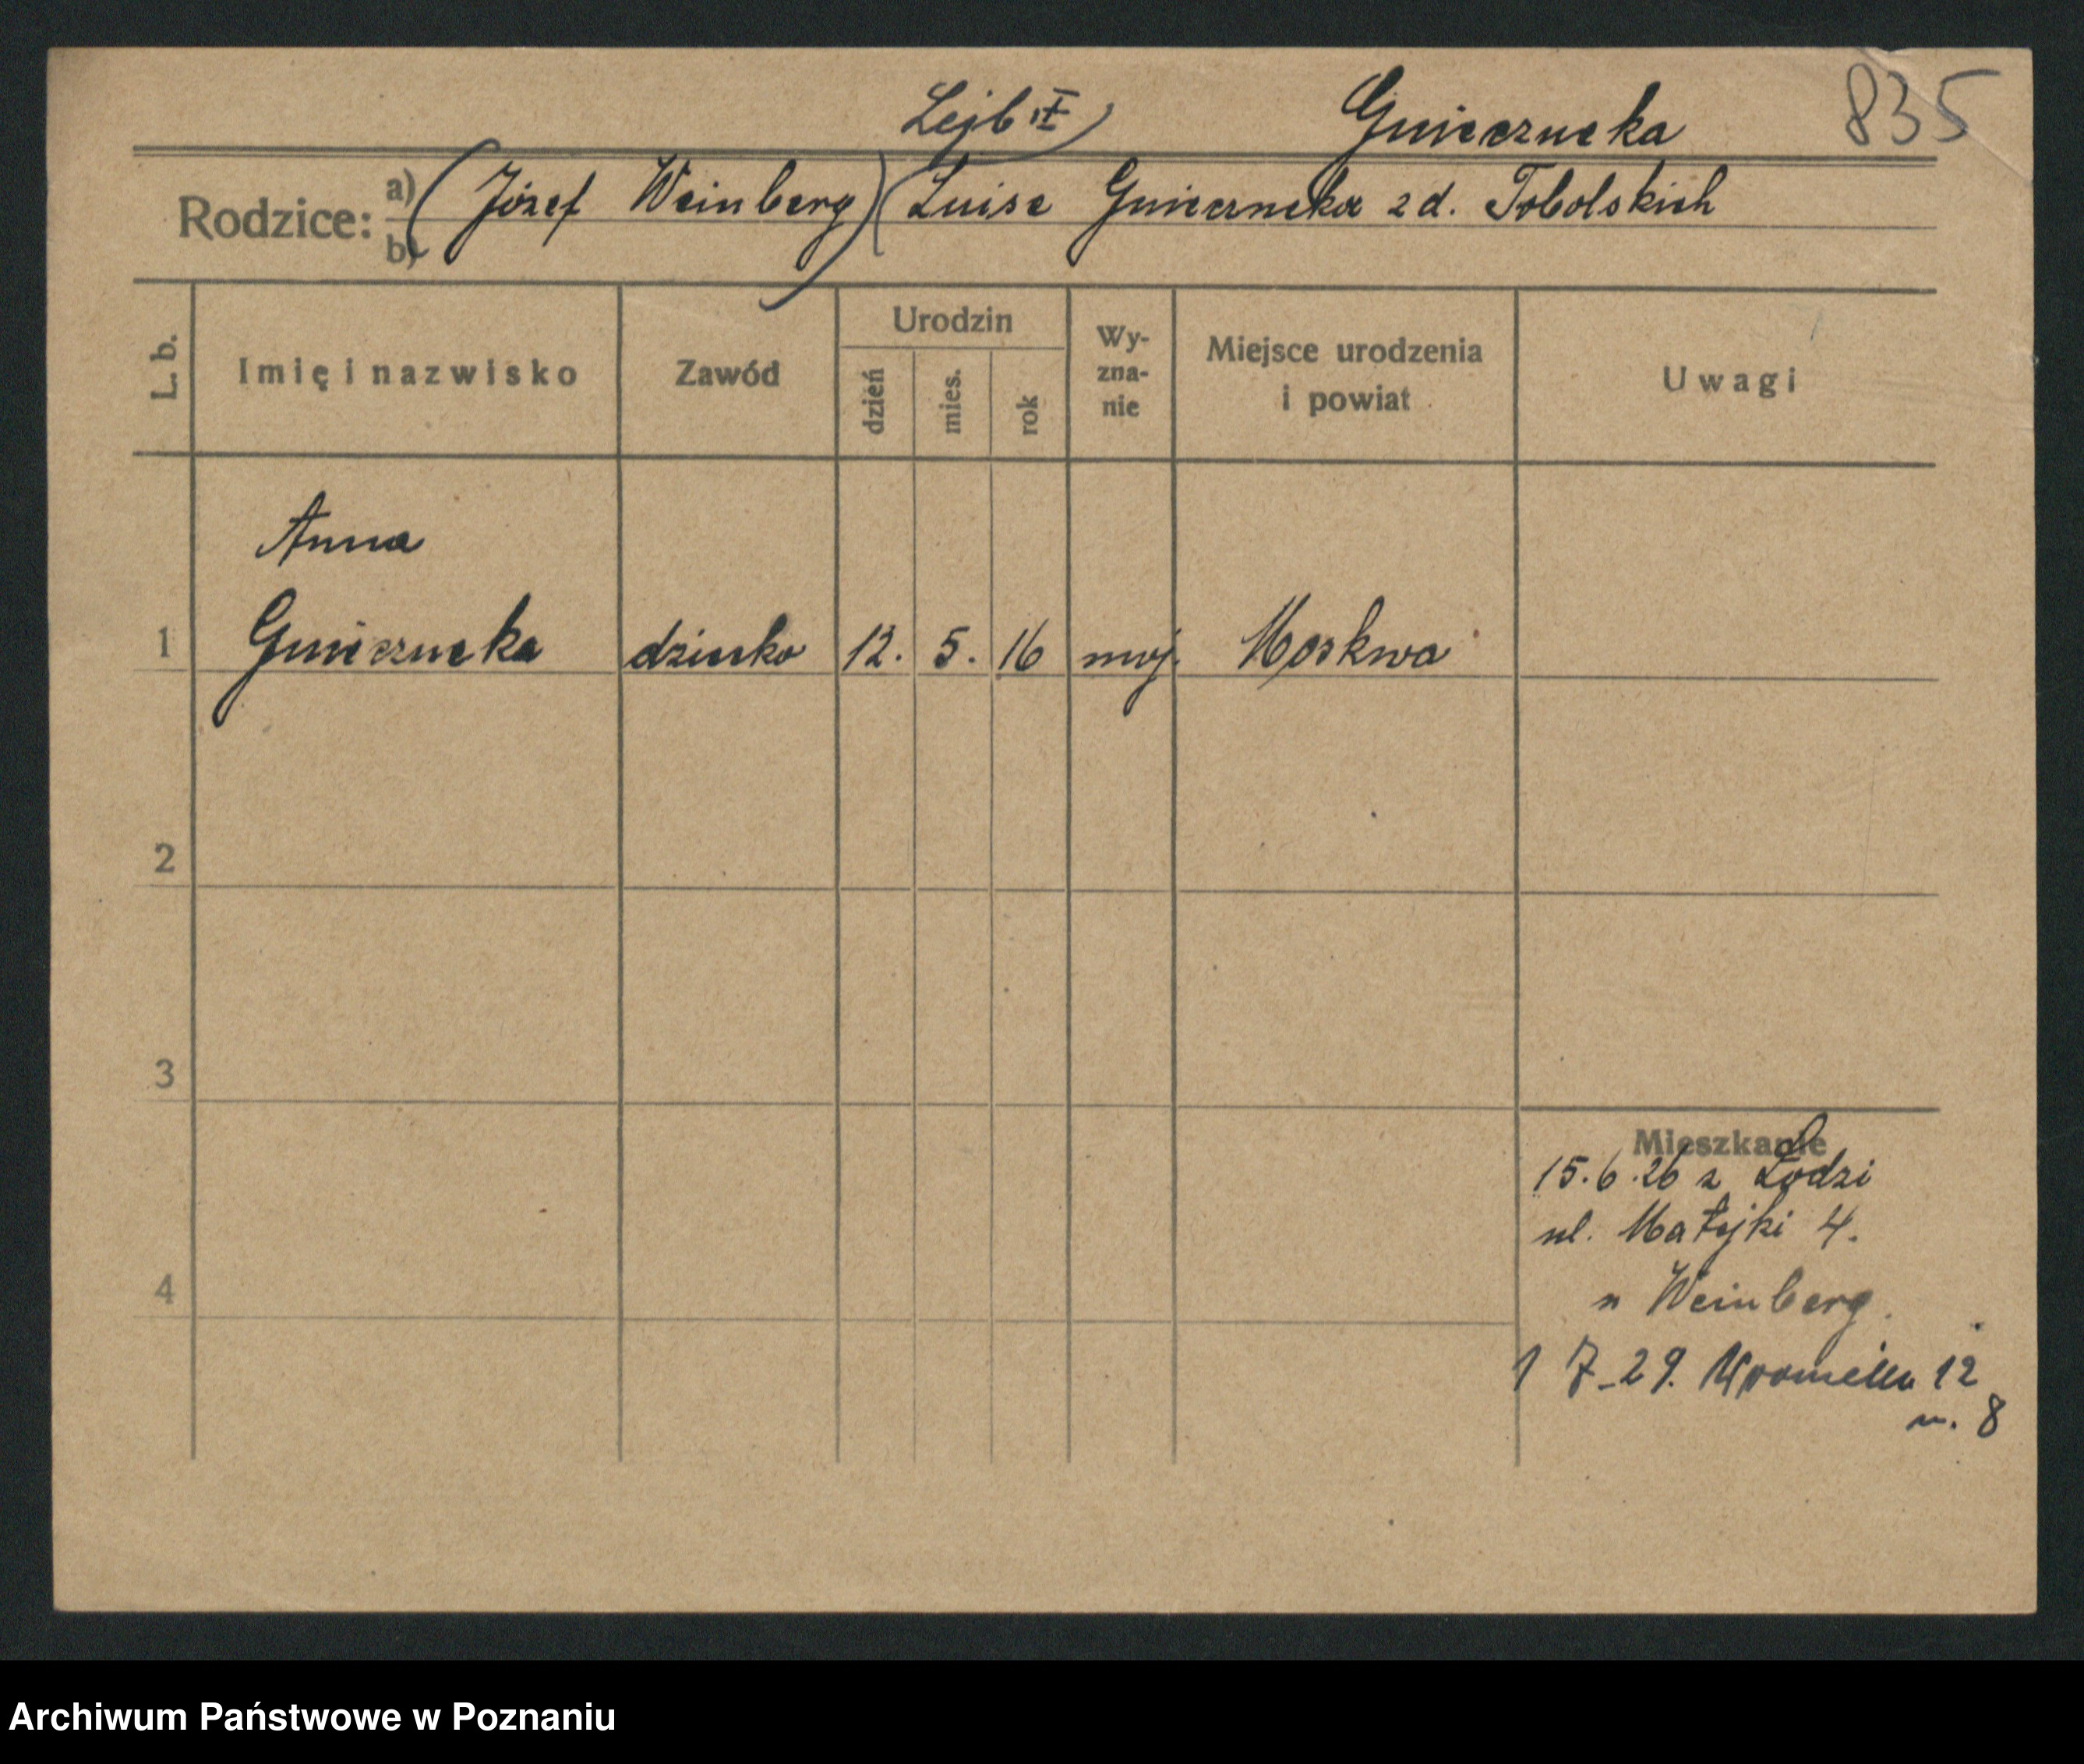 Lejb II) Gnieznecka 835
Rodzice: a) (Józef Weinberg) (Luise Gnieznecka zd. Tobolskich
b)
L. b. Imię i nazwisko Zawód Urodzin dzień mies. rok Wyznanie Miejsce urodzenia i powiat Uwagi
Anna
1 Gnieznecka dziecko 12. 5. 16 moj. Moskwa
2
3
Mieszkanie
15.6.26 z Łodzi
ul. Matejki 4.
4
u Weinberg.
1 7-29. 12
m. 8
Archiwum Państwowe w Poznaniu